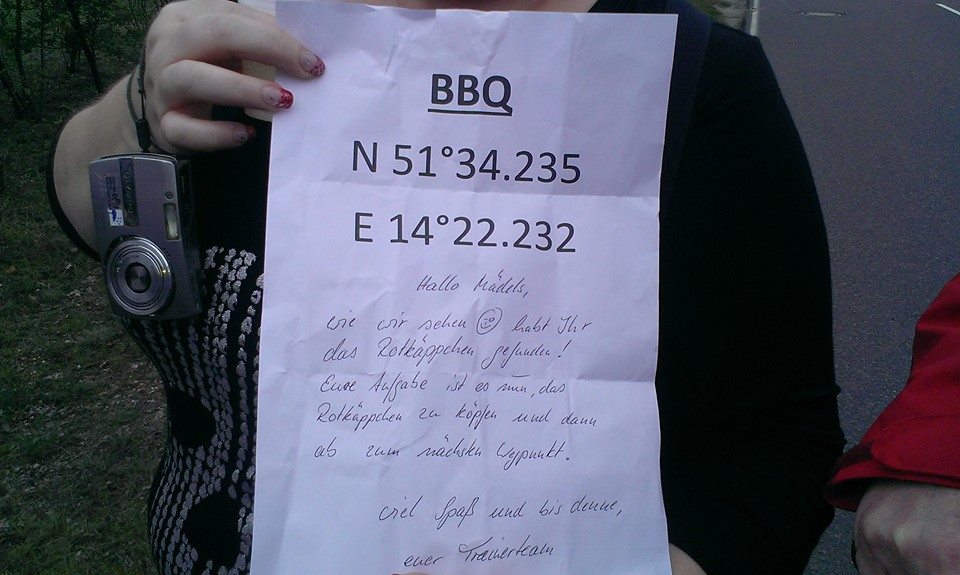 BBQ
N 51°34.235
E 14°22.232
Hallo Mädels,
wie wir sehen ☺ habt Ihr
das Rotkäppchen gefunden!
Eure Aufgabe ist es nun, das
Rotkäppchen zu köpfen und dann
ab zum nächsten Waypunkt.
viel Spaß und bis denne,
euer Trainerteam